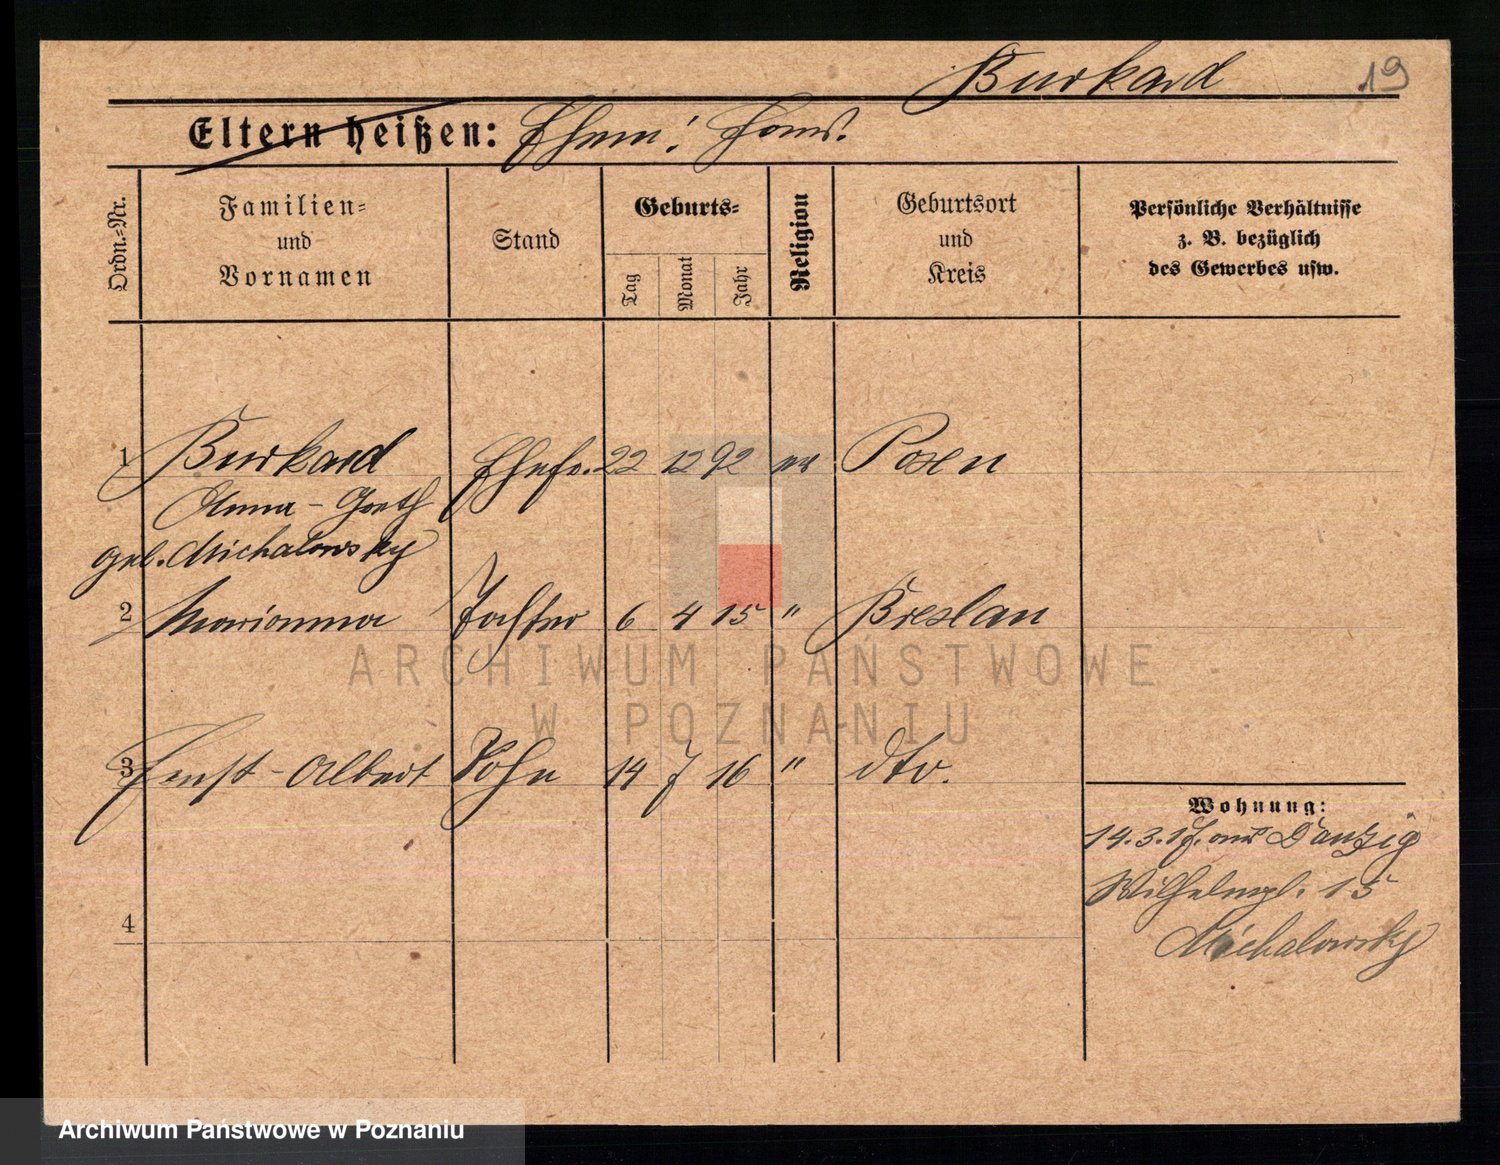 Burkard 19
Eltern heißen: Ehem: Hans.
Ordn.-Nr.
Familien-
und
Vornamen
Stand
Geburts-
Tag
Monat
Jahr
Religion
Geburtsort
und
Kreis
Persönliche Verhältnisse
z. B. bezüglich
des Gewerbes usw.
1 Burkard Ehefr. 22 12 92 ev Posen
Anna-
geb. Michalowsky
2 Marianna Tochter 6 4 15 " Breslau
3 Ernst-Albert Sohn 14 7 16 " dto.
4
Wohnung:
14.3.17. aus Danzig
Wilhelmpl. 15
Michalowsky
ARCHIWUM PAŃSTWOWE
W POZNANIU
Archiwum Państwowe w Poznaniu